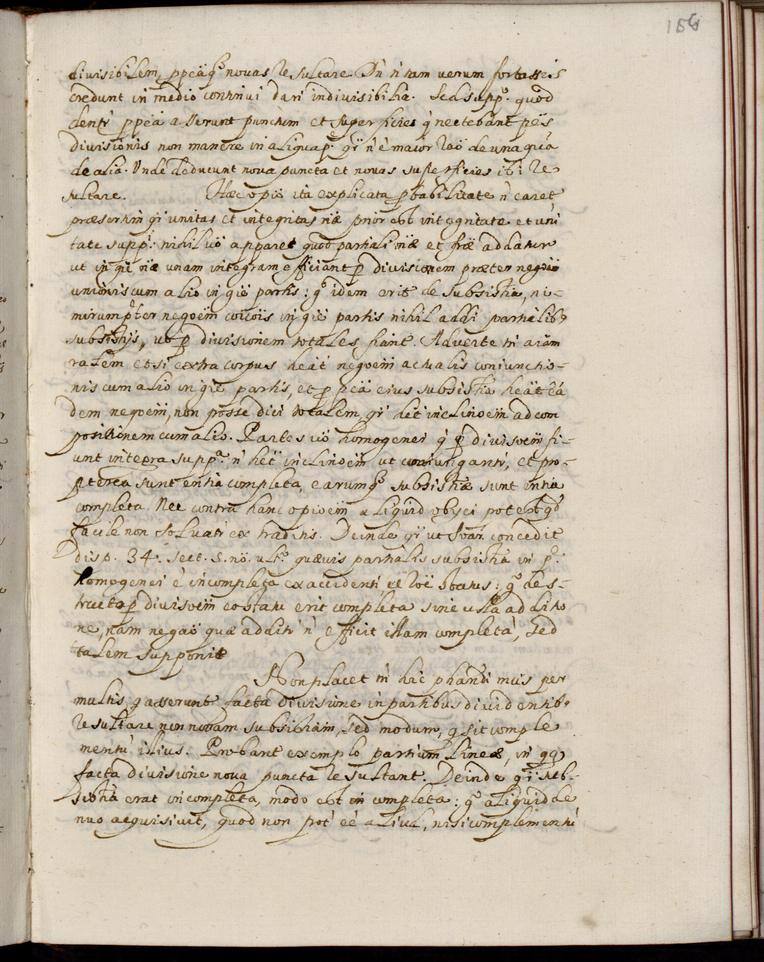 154
divisibilem, ppeà q̃ novas resultare. Dñ ñ tam verum fortasse è
credunt in medio continui dari indivisibilia. Sed supp.º quod
denti ppea asserunt punctum et superficies q̃ nectebant ptẽs
divisionis non manere in aliqua p.ᵉ q̃i ñ è maior raõ de una quà
de alia. Unde deducunt nova puncta et novas superficies ibi re
sultare. Hæc opiõ ita explicata probabilitate ñ caret
præsertim q̃i unitas et integritas næ prior est integritate et uni
tate supp.ⁱ: nihil võ apparet quod partiali næ et fræ addatur
ut in q̃i næ unam integram efficiant p divisionem præter negõẽ
unionis cum alio in gñe partis: q̃ idem erit de subsistia, ni-
mirum p̃ter negoẽm coiõis in gñe partis nihil addi partialib9
subsistijs, ut p divisionem totales fiant. Adverte tñ aiam
ralem etsi extra corpus heàt negoẽm actualis coniunctio-
nis cum alio in gñe partis, et ppeà eius subsistia heàt eà
dem negoẽm, non posse dici totalem, q̃i het inclinoẽm ad com
positionem cum alio. Partes võ homogenei q̃ p divisoẽm fi-
unt integra supp.ᵃ ñ hẽt inclinoẽm ut coniungantr, et pro-
pterea sunt entia completa, earumq̃ subsistiæ sunt entia
completa. Nec contra hanc opioẽm aliquid obijci potest qd
facile non solvatr ex traditis. Deinde q̃i ut Soar. concedit
disp. 34. sect. 5. nõ. ult.º quævis partialis subsistia in p.ᵉ
homogenei è incompleta ex accidenti rẽ toẽ status: q̃ de s-
tructo p divisoẽm eo statu erit completa sine ulla additio
ne, nam negaõ quæ additr ñ efficit illam completà, sed
talem supponit
Non placet tñ hic phandi muis per
multis q̃ asserunt facta divisione in partibus dividentib9
resultare non novam subsistiam, sed modum, q̃ sit comple
mentũ illius. Probant exemplo partium lineæ, in qq
facta divisione nova puncta resultant. Deinde q̃i sub-
sistia erat incompleta, modo est in completa: q̃ aliquid de
nuo acquisivit, quod non pot èè aliud, nisi complementũ